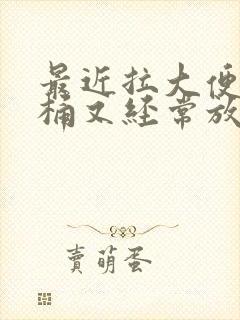 最近拉大便
桶又経常放
賣萌蛋